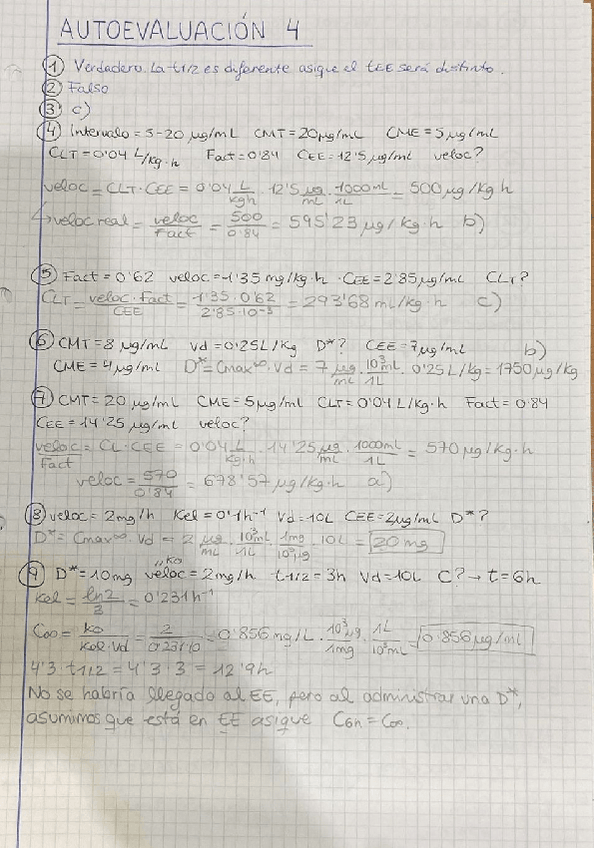 AUTOEVALUACIÓN 4
① Verdadero. La t1/2 es diferente asique el tEE será distinto.
② Falso
③ c)
④ Intervalo = 5-20 μg/mL CMT = 20 μg/mL CME = 5 μg/mL
CLT = 0'04 L/kg·h Fact = 0'84 CEE = 12'5 μg/mL veloc?
veloc = CLT · CEE = 0'04 L/kgh · 12'5 μg/mL · 1000mL/1L = 500 μg/kg h
↳ veloc real = veloc/Fact = 500/0'84 = 595'23 μg/kg·h b)
⑤ Fact = 0'62 veloc = 1'35 mg/kg·h · CEE = 2'85 μg/mL CLT?
CLT = veloc · Fact/CEE = 1'35 · 0'62/2'85·10⁻³ = 293'68 mL/kg·h c)
⑥ CMT = 8 μg/mL Vd = 0'25L/kg D*? CEE = 7 μg/mL b)
CME = 4 μg/mL D* = Cmax∞ · Vd = 7 μg/mL · 10³mL/1L · 0'25 L/kg = 1750 μg/kg
⑦ CMT = 20 μg/mL CME = 5 μg/mL CLT = 0'04 L/kg·h Fact = 0'84
CEE = 14'25 μg/mL veloc?
veloc/Fact = CL · CEE = 0'04 L/kg·h · 14'25 μg/mL · 1000mL/1L = 570 μg/kg·h
veloc = 570/0'84 = 678'57 μg/kg·h a)
⑧ veloc = 2mg/h Kel = 0'1h⁻¹ Vd = 10L CEE = 2 μg/mL D*?
D* = Cmax∞ · Vd = 2 μg/mL · 10³mL/1L · 1mg/10³μg · 10L = 20 mg
"ko
⑨ D* = 10mg veloc = 2mg/h t1/2 = 3h Vd = 10L C? → t = 6h
Kel = ln2/3 = 0'231h⁻¹
C∞ = ko/Kel·Vd = 2/0'231·10 = 0'856 mg/L · 10³μg/1mg · 1L/10³mL = 0'856 μg/mL
4'3 · t1/2 = 4'3 · 3 = 12'9h
No se habría llegado al EE, pero al administrar una D*,
asumimos que está en EE asique C6h = C∞.